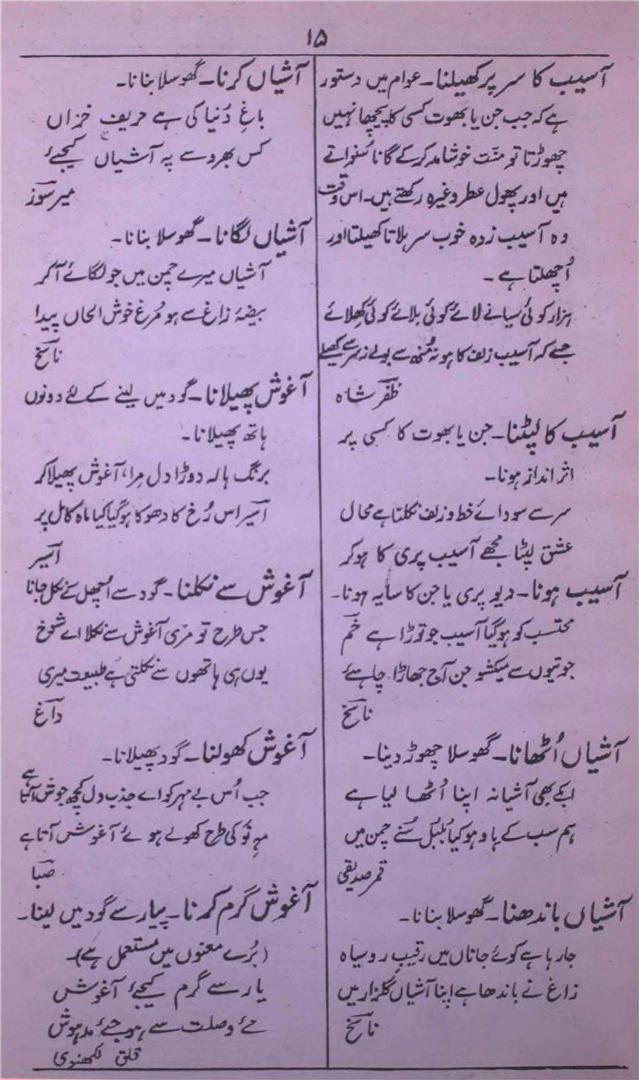 ۱۵
آسیب کا سر پر کھیلنا۔ عوام میں دستور
ہے کہ جب جن یا بھوت کسی کا پیچھا نہیں
چھوڑتا تو منّت خوشامد کر کے گانا سُنواتے
ہیں اور پھول عطر وغیرہ رکھتے ہیں۔ اس وقت
وہ آسیب زدہ خوب سر ہلاتا کھیلتا اور
اُچھلتا ہے۔
ہزار کوئی سیانے لائے کوئی بلائے کوئی کھلائے
جسے کہ آسیب زلف کا ہو نہ مُنھ سے بولے نہ سر سے کھیلے
ظفر شاہ
آسیب کا لپٹنا۔ جن یا بھوت کا کسی پر
اثر انداز ہونا۔
سر سے سودائے خط و زلف نکلتا ہے محال
عشق لپٹا مجھے آسیب پری کا ہو کر
آسیب ہونا۔ دیو پری یا جن کا سایہ ہونا۔
محتسب کو ہو گیا آسیب جو توڑا ہے خم
جوتیوں سے میکشو جن آج جھاڑا چاہئے
ناسخ
آشیاں اُٹھانا۔ گھوسلا چھوڑ دینا۔
ابکے بھی آشیانہ اپنا اُٹھا لیا ہے
ہم سب کے باوہو کیا بلبل سُنے چمن میں
قمر صدیقی
آشیاں باندھنا۔ گھوسلا بنانا۔
جا رہا ہے کوئے جاناں میں رقیب رو سیاہ
زاغ نے باندھا ہے اپنا آشیاں گلزار میں
ناسخ
آشیاں کرنا۔ گھوسلا بنانا۔
باغِ دُنیا کی ہے حریف خزاں
کس بھروسے پہ آشیاں کیجئے
میر سوز
آشیاں لگانا۔ گھوسلا بنانا۔
آشیاں میرے چمن میں جو لگائے آ کر
بیضۂ زاغ سے ہو مُرغ خوش الحاں پیدا
ناسخ
آغوش پھیلانا۔ گود میں لینے کے لئے دونوں
ہاتھ پھیلانا۔
برنگ ہالہ دوڑا دل مرا، آغوش پھیلا کر
اسیر اس رُخ کا دھوکا ہو گیا کیا ماہ کامل پر
اسیر
آغوش سے نکلنا۔ گود سے اُچھل کے نکل جانا
جس طرح تو مری آغوش سے نکلا اے شوخ
یوں ہی ہاتھوں سے نکلتی ہے طبیعت میری
داغ
آغوش کھولنا۔ گود پھیلانا۔
جب اُس بے مہر کو اے جذب دل کچھ جوش آتا ہے
مہِ نَو کی طرح کھولے ہوئے آغوش آتا ہے
صبا
آغوش گرم کرنا۔ پیار سے گود میں لینا۔
(بُرے معنوں میں مستعمل ہے)۔
یار سے گرم کیجئے آغوش
مئے وصلت سے ہو جئے مدہوش
قلق لکھنوی